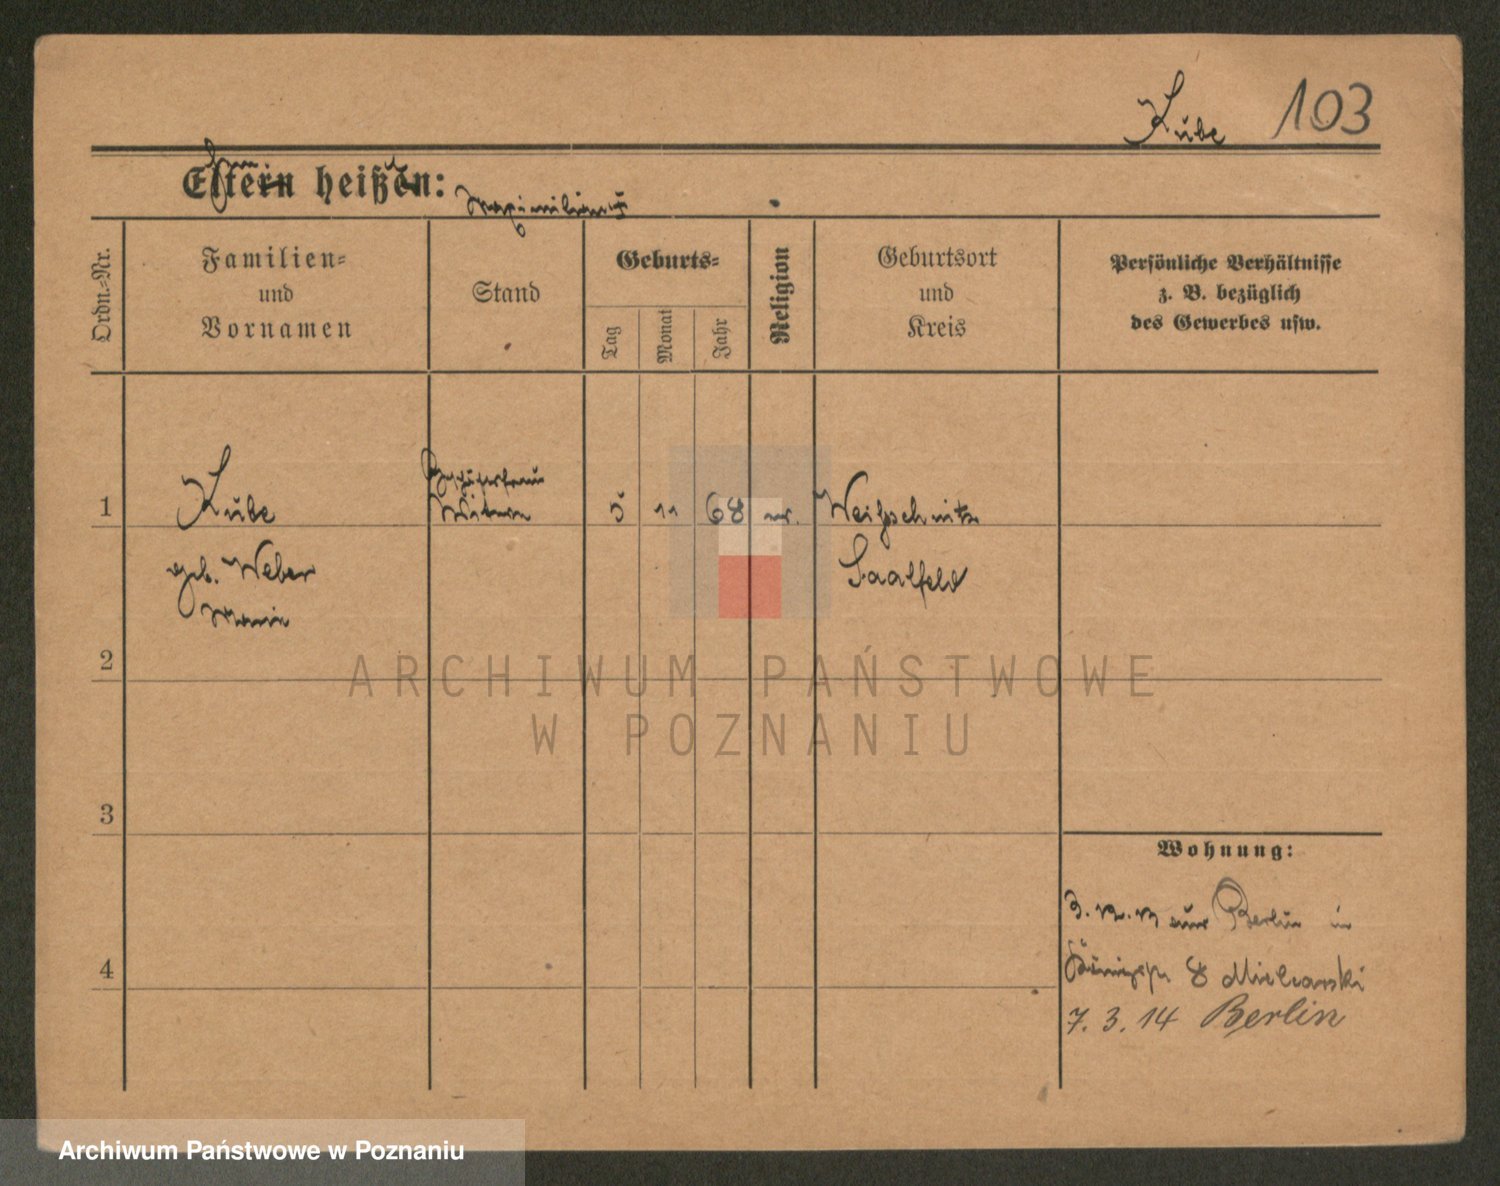 Kube 103
Eltern heißen:
Ordn.-Nr.
Familien-
und
Vornamen
Stand
Geburts-
Tag
Monat
Jahr
Religion
Geburtsort
und
Kreis
Persönliche Verhältnisse
z. B. bezüglich
des Gewerbes usw.
1
Kube
5 11 68
Saalfeld
geb. Weber
Marie
2
ARCHIWUM PAŃSTWOWE
W POZNANIU
3
Wohnung:
3. 12. 13 aus Berlin in
8
4
7. 3. 14 Berlin
Archiwum Państwowe w Poznaniu